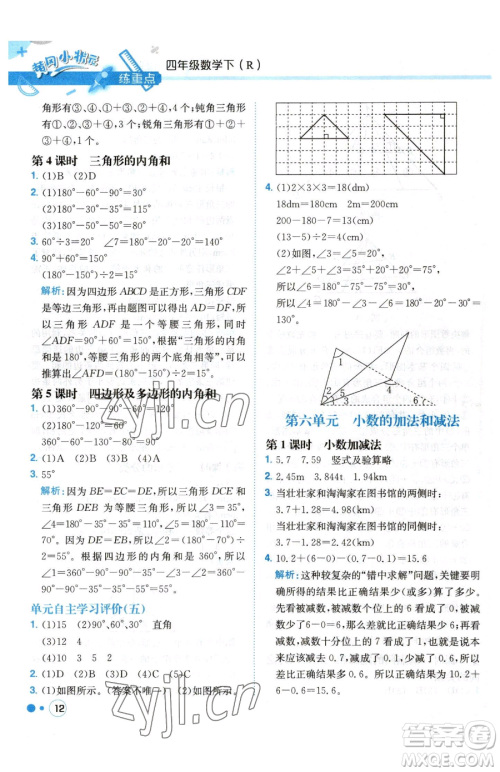 黄冈小状元
练重点
四年级数学下（R）
角形有③、④，①+③=④；钝角三角形有
③、④，①+③=④；锐角三角形有③、④，
①+③=④。
第4课时 三角形的内角和
1. (1)B (2)D
2. (1)180°-60°-90°=30°
(2)180°-30°-35°=115°
(3)180°-50°-50°=80°
3. 60°÷3=20° ∠7=180°-20°-60°=100°
4. 90°+60°=150°
(180°-150°)÷2=15°
解析：因为四边形ABCD是正方形，三角形CDF
是等边三角形，根据已知条件可以得出AD=DF，所
以三角形ADF是一个等腰三角形，同时得出
∠ADF=90°+60°=150°，因为三角形ADF是一个
等腰三角形，等腰三角形的两个底角相等，可以
推算出∠AFD=(180°-150°)÷2=15°。
第5课时 四边形及多边形的内角和
1. (1)360°-90°-90°-60°=120°
(2)360°-90°-90°-70°=110°
360°-90°-80°-80°=110°
2. (1)B (2)A
3. 55°
解析：因为BE=EC=DE，所以BE=DE，因此三
角形DEB为等腰三角形，也就是∠1=∠2。由
三角形内角和是180°可知，∠B=180°-90°-35°
=55°。根据四边形的内角和是360°，所以∠1+∠2
=360°-90°-90°-35°-35°=110°，∠1=110°÷
2=55°。
单元自主学习评价(五)
1. (1)65 (2)90°、30° 直角
(3)12 4
(4)10 3 5 2
2. (1)D (2)B (3)D (4)A (5)A
3. (1)如图所示。（答案不唯一） (2)如图所示。
4. (1)2×3×3=18(dm)
18dm=180cm 2m=200cm
200-180-7=13(cm)
(13-5)÷2=4(cm)
(2)由折叠可知，∠5=∠4=75°，
∠1=∠6=180°-75°-75°=30°，
所以∠1=30°。
∠2+∠3=180°-30°=150°
∠2=∠3=150°÷2=75°
所以∠2=75°。
第六单元 小数的加法和减法
第1课时 小数加减法
1. 5.7 7.59 竖式及验算略
2. 2.45m 4.94m 1.86m
3. 当壮壮家和淘淘家在图书馆的两侧时：
3.7+1.28=4.98(km)
当壮壮家和淘淘家在图书馆的同侧时：
3.7-1.28=2.42(km)
4. 10.2+(6-0)-(0.7-0.1)=15.6
解析：这种较复杂的“错中求解”问题，关键要看
所得的结果比正确的结果多了多少或少了多少。
先看被减数，被减数个位上的6看成0，被减数减
少了6，所得的结果比正确的结果减少6；再看减
数，减数十分位上的1看成7，减数增加了0.6，
所得的结果比正确的结果减少了0.6。所以正确
的结果为10.2+6-0.6=15.6。
12
zyji.cn
zyji.cn
答案圈
MXQE.COM